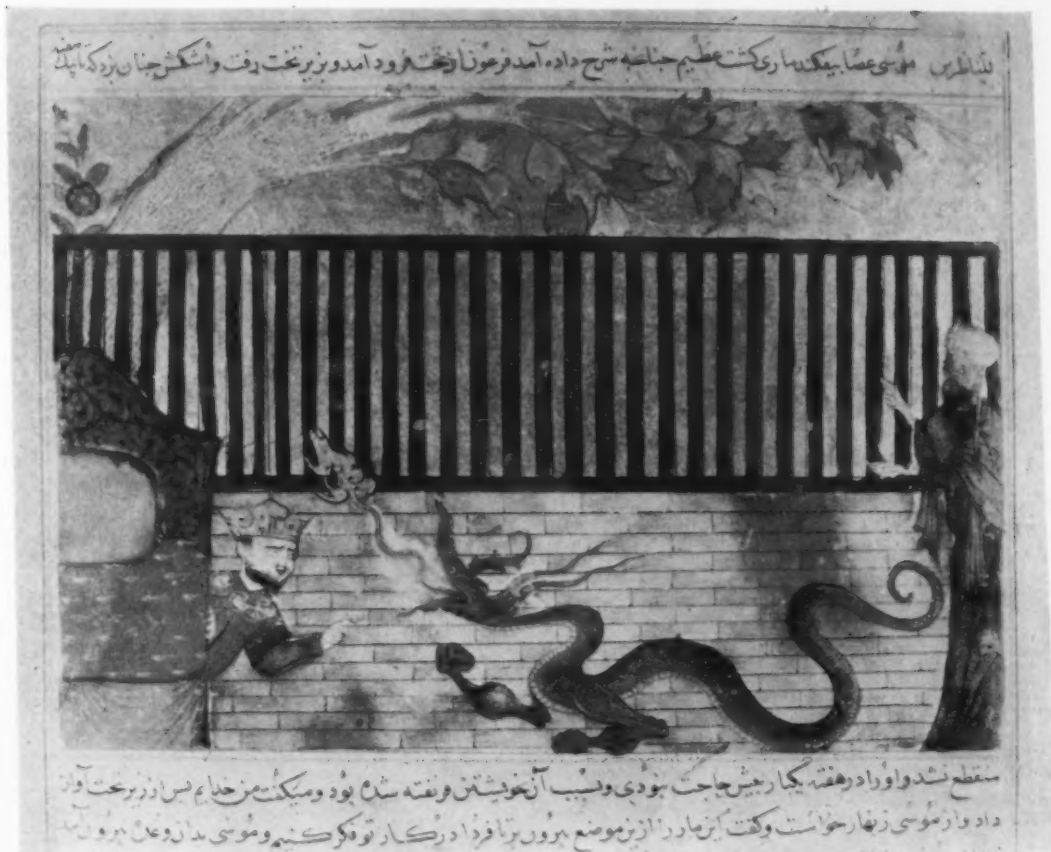 للناظرین موسی عصا بیفکند ماری گشت عظیم چنانچه شرح داده آمد فرعون از تخت فرود آمد و بزیر تخت رفت و اشکمش چنان برد که تا یک هفته
منقطع نشد و او را در هفته یکبار بیش حاجت نبودی و بسبب آن خویشتن فریفته شده بود و میگفت من خدایم پس از زیر تخت آواز
داد و از موسی زنهار خواست و گفت این مار را ازین موضع بیرون بر تا فردا در کار تو فکر کنیم و موسی بدان وعده بیرون آمد